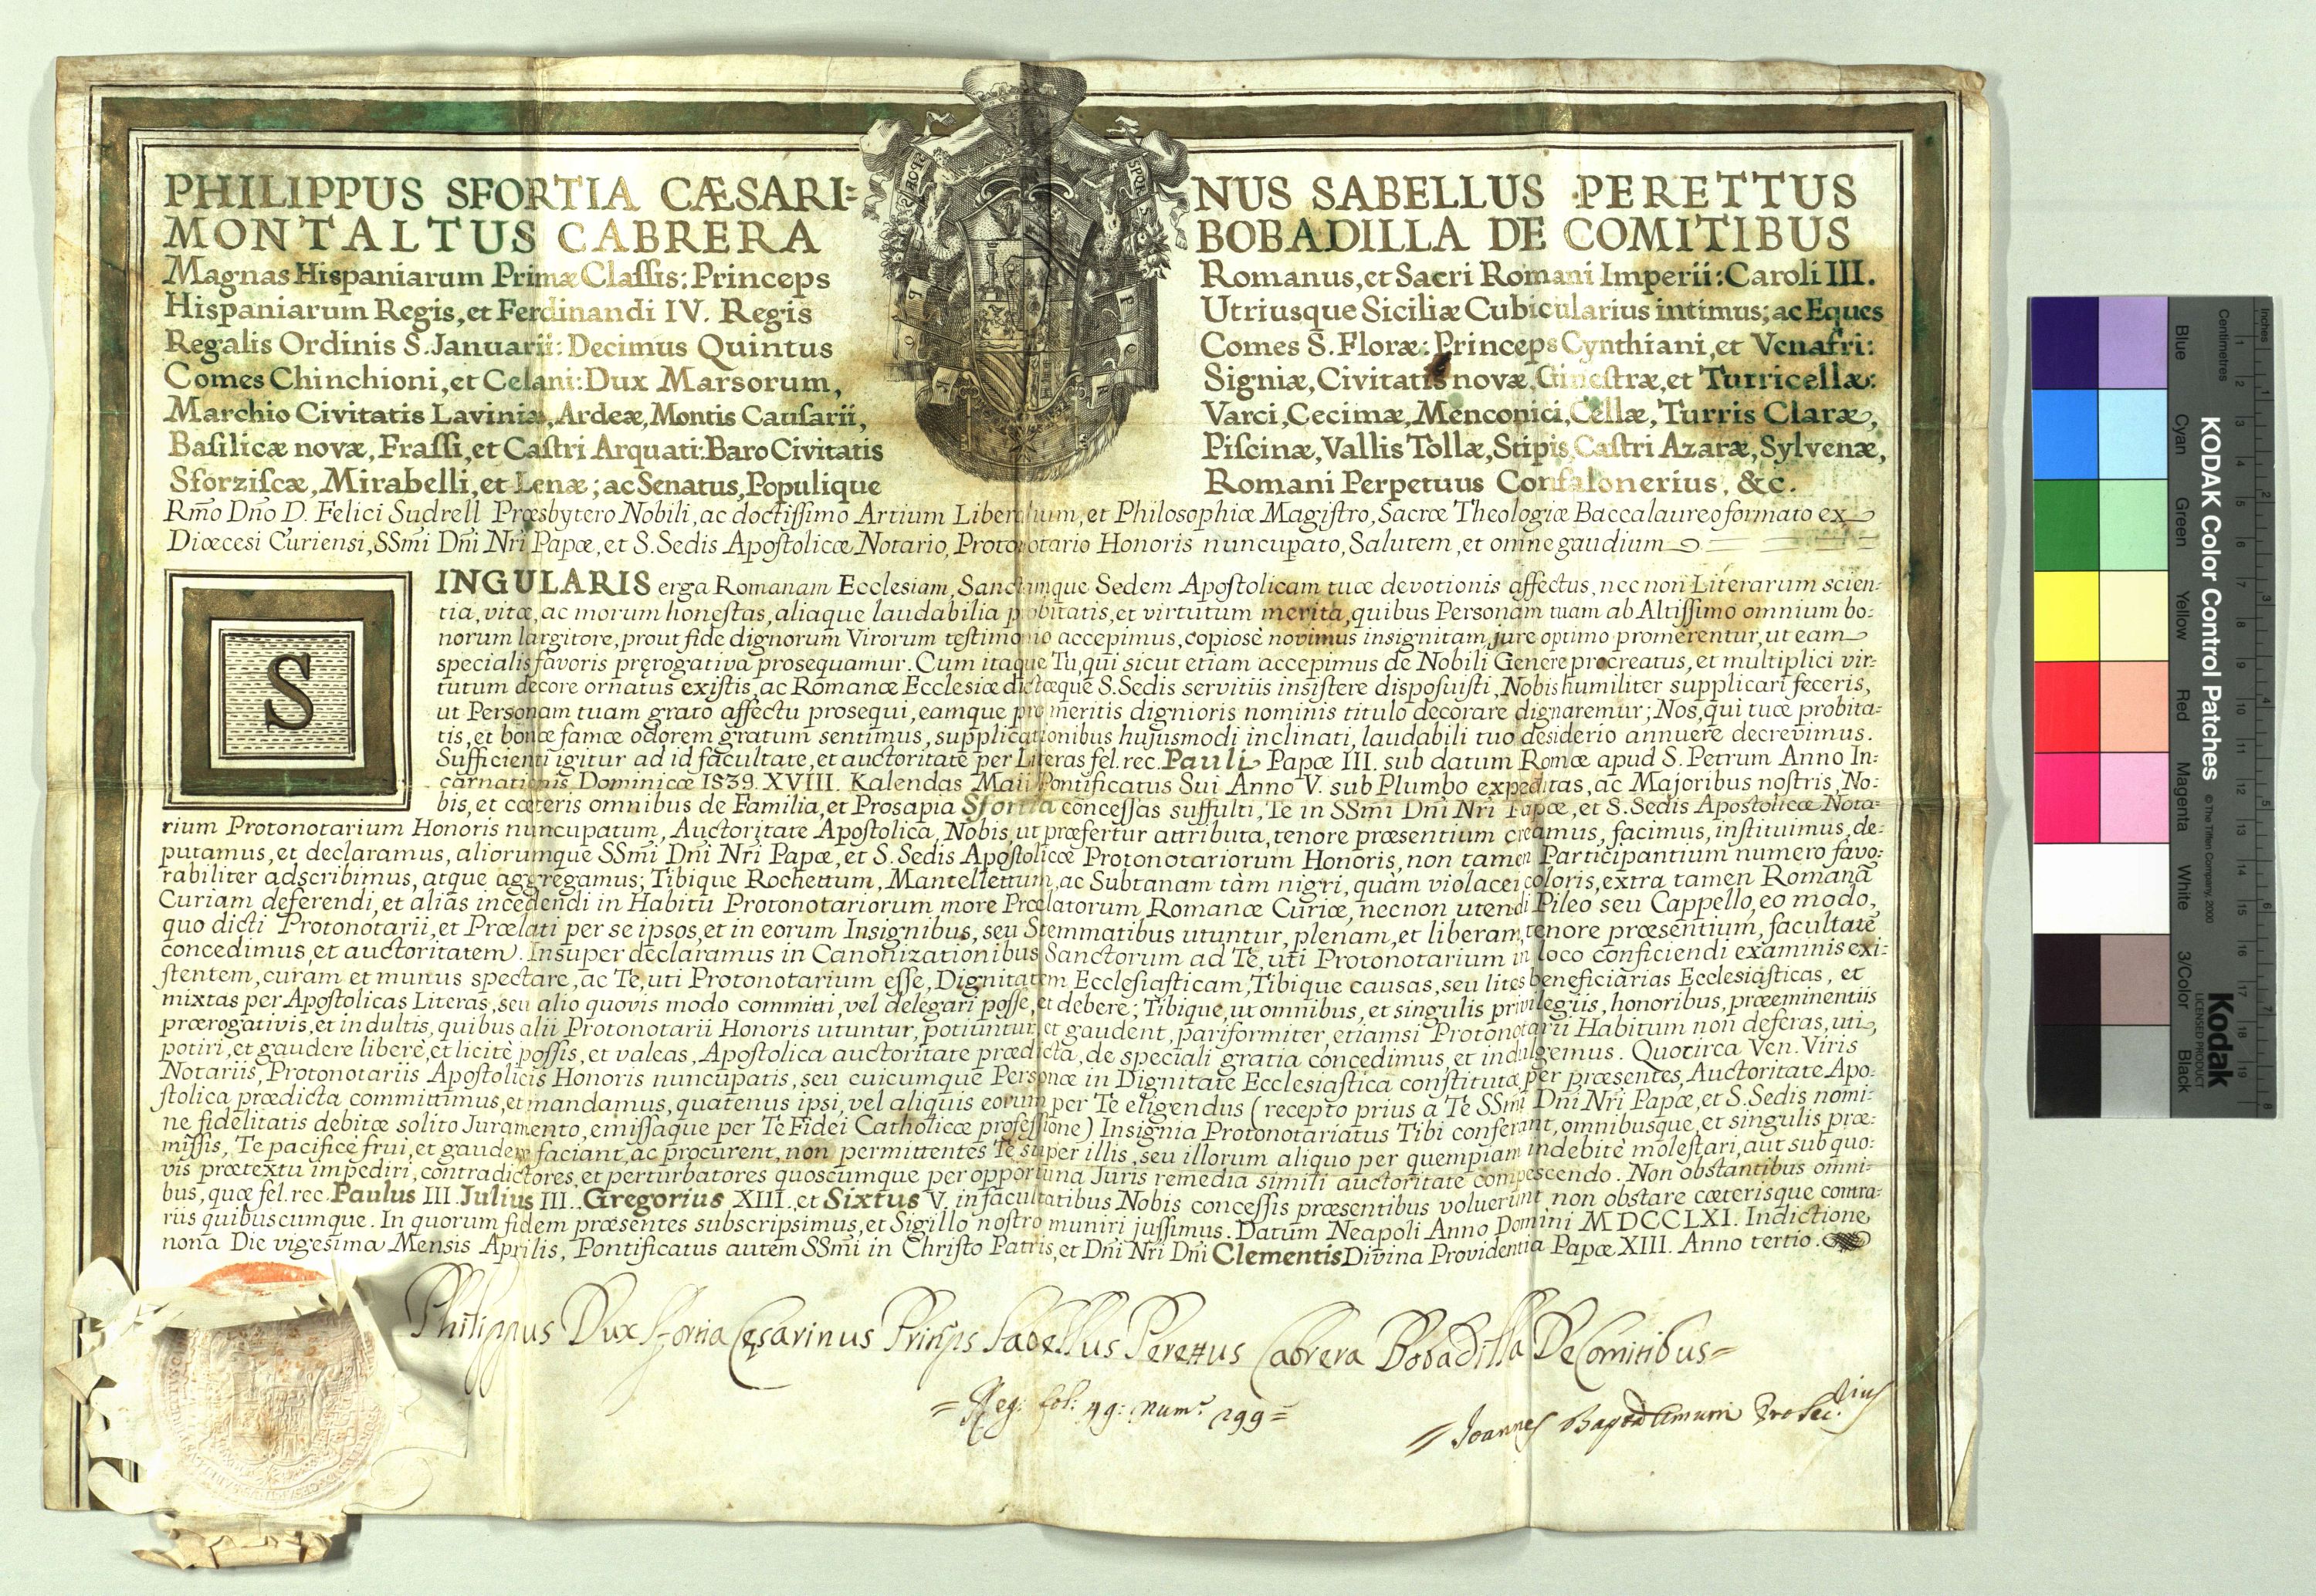 PHILIPPUS SFORTIA CÆSARI= NUS SABELLUS PERETTUS
MONTALTUS CABRERA BOBADILLA DE COMITIBUS
Magnas Hispaniarum Primæ Claſſis: Princeps Romanus, et Sacri Romani Imperii: Caroli III.
Hispaniarum Regis, et Ferdinandi IV. Regis Utriusque Siciliæ Cubicularius intimus; ac Eques
Regalis Ordinis S. Januarii: Decimus Quintus Comes S. Floræ: Princeps Cynthiani, et Venafri:
Comes Chinchioni, et Celani: Dux Marsorum, Signiæ, Civitatis novæ, Gineſtræ, et Turricellæ:
Marchio Civitatis Laviniæ, Ardeæ, Montis Cauſarii, Varci, Cecimæ, Menconici, Cellæ, Turris Claræ,
Baſilicæ novæ, Fraſſi, et Caſtri Arquati: Baro Civitatis Piſcinæ, Vallis Tollæ, Stipis, Caſtri Azaræ, Sylvenæ,
Sforziſcæ, Mirabelli, et Lenæ; ac Senatus, Populique Romani Perpetuus Confalonerius, &c.
Rm̃o Dño D. Felici Sudrell Præsbytero Nobili, ac doctiſſimo Artium Liberalium, et Philosophiæ Magiſtro, Sacræ Theologiæ Baccalaureo formato ex
Diœcesi Curiensi, SSm̃i Dñi Nr̃i Papæ, et S. Sedis Apoſtolicæ Notario, Protonotario Honoris nuncupato, Salutem, et omne gaudium
SINGULARIS erga Romanam Ecclesiam, Sanctamque Sedem Apoſtolicam tuæ devotionis affectus, nec non Literarum scien=
tia, vitæ, ac morum honeſtas, aliaque laudabilia probitatis, et virtutum merita, quibus Personam tuam ab Altiſſimo omnium bo=
norum largitore, prout fide dignorum Virorum teſtimonio accepimus, copiosè novimus insignitam, jure optimo promerentur, ut eam
specialis favoris pręrogativa prosequamur. Cum itaque Tu, qui sicut etiam accepimus de Nobili Genere procreatus, et multiplici vir=
tutum decore ornatus exiſtis, ac Romanæ Ecclesiæ dictæque S. Sedis servitiis insiſtere disposuiſti, Nobis humiliter supplicari feceris,
ut Personam tuam grato affectu prosequi, eamque pro meritis dignioris nominis titulo decorare dignaremur; Nos, qui tuæ probita=
tis, et bonæ famæ odorem gratum sentimus, supplicationibus hujusmodi inclinati, laudabili tuo desiderio annuere decrevimus.
Sufficienti igitur ad id facultate, et auctoritate per Literas fel. rec. Pauli Papæ III. sub datum Romæ apud S. Petrum Anno In=
carnationis Dominicæ 1539. XVIII. Kalendas Maii Pontificatus Sui Anno V. sub Plumbo expeditas, ac Majoribus noſtris, No=
bis, et cæteris omnibus de Familia, et Prosapia Sfortia conceſſas suffulti, Te in SSm̃i Dñi Nr̃i Papæ, et S. Sedis Apostolicæ Nota=
rium Protonotarium Honoris nuncupatum, Auctoritate Apoſtolica, Nobis, ut præfertur attributa, tenore præsentium creamus, facimus, inſtituimus, de=
putamus, et declaramus, aliorumque SSm̃i Dñi Nr̃i Papæ, et S. Sedis Apoſtolicæ Protonotariorum Honoris, non tamen Participantium numero favo=
rabiliter adscribimus, atque aggregamus; Tibique Rochettum, Mantellettum, ac Subtanam tàm nigri, quàm violacei coloris, extra tamen Romanã
Curiam deferendi, et aliàs incedendi in Habitu Protonotariorum more Prælatorum Romanæ Curiæ, necnon utendi Pileo seu Cappello, eo modo,
quo dicti Protonotarii, et Prælati per se ipsos, et in eorum Insignibus, seu Stemmatibus utuntur, plenam, et liberam, tenore præsentium, facultatẽ
concedimus, et auctoritatem. Insuper declaramus in Canonizationibus Sanctorum ad Te, uti Protonotarium in loco conficiendi examinis exi=
ſtentem, curam et munus spectare, ac Te, uti Protonotarium eſſe, Dignitatem Eccleſiaſticam, Tibique causas, seu lites beneficiarias Ecclesiaſticas, et
mixtas per Apoſtolicas Literas, seu alio quovis modo committi, vel delegari poſſe, et debere; Tibique, ut omnibus, et singulis privilegiis, honoribus, præeminentiis
prærogativis, et indultis, quibus alii Protonotarii Honoris utuntur, potiuntur, et gaudent, pariformiter, etiamsi Protonotarii Habitum non deferas, uti,
potiri, et gaudere liberè, et licitè poſſis, et valeas, Apoſtolica auctoritate prædicta, de speciali gratia concedimus, et indulgemus. Quocirca Ven. Viris
Notariis, Protonotariis Apoſtolicis Honoris nuncupatis, seu cuicumque Personæ in Dignitate Ecclesiaſtica conſtitutæ per præsentes, Auctoritate Apo=
ſtolica prædicta committimus, et mandamus, quatenus ipsi, vel aliquis eorum per Te eligendus (recepto prius a Te SSm̃i Dñi Nr̃i Papæ, et S. Sedis nomi=
ne fidelitatis debitæ solito Juramento, emiſſaque per Te Fidei Catholicæ profeſſione) Insignia Protonotariatus Tibi conferant, omnibusque, et singulis præ=
miſſis, Te pacificè frui, et gaudere faciant, ac procurent, non permittentes Te super illis, seu illorum aliquo per quempiam indebitè moleſtari, aut sub quo=
vis prætextu impediri, contradictores, et perturbatores quoscumque per opportuna Juris remedia simili auctoritate compescendo. Non obſtantibus omni=
bus, quæ fel. rec. Paulus III. Julius III. Gregorius XIII. et Sixtus V. in facultatibus Nobis conceſſis præsentibus voluerunt non obstare cæterisque contra=
riis quibuscumque. In quorum fidem præsentes subscripsimus, et Sigillo noſtro muniri juſſimus. Datum Neapoli Anno Domini MDCCLXI. Indictione
nona Die vigesima Mensis Aprilis, Pontificatus autem SSm̃i in Chriſto Patris, et Dñi Nr̃i Dñi Clementis Divina Providentia Papæ XIII. Anno tertio.
Philippus Dux Sfortia Cęsarinus Prin̄ps Sabellus Perettus Cabrera Bobadilla De Comitibus=
= Reg: fol: 49: num.º 299 =
Joannes Bapta
Inches
Centimetres
1 2 3 4 5 6 7 8
1 2 3 4 5 6 7 8 9 10 11 12 13 14 15 16 17 18 19
KODAK Color Control Patches
© The Tiffen Company, 2000
Kodak
LICENSED PRODUCT
Blue Cyan Green Yellow Red Magenta White 3/Color Black